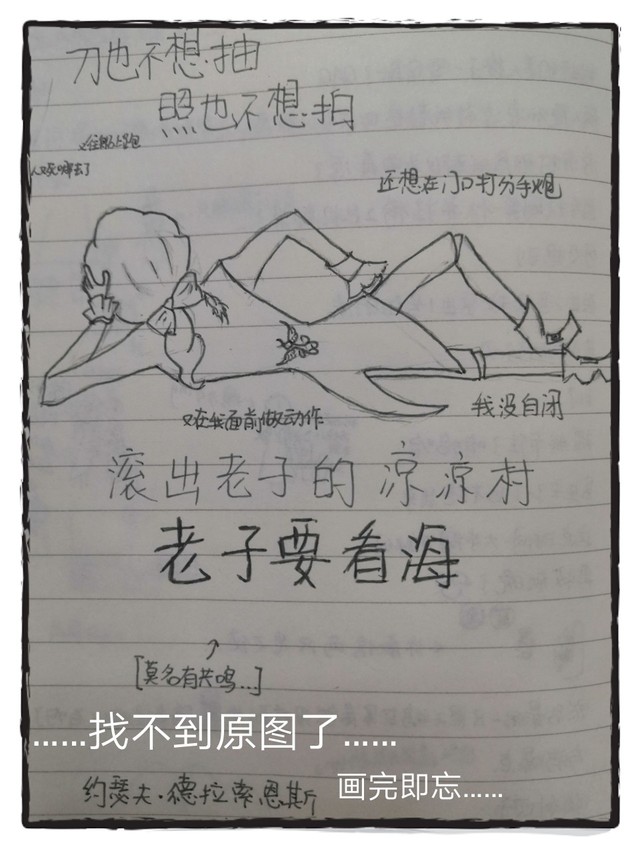 刀也不想抽
照也不想拍
又往船上跑
还想在门口打分手炮
又在我面前做动作
我没自闭
滚出老子的凉凉村
老子要看海
[莫名有共鸣...]
......找不到原图了......
约瑟夫·德拉索恩斯
画完即忘......